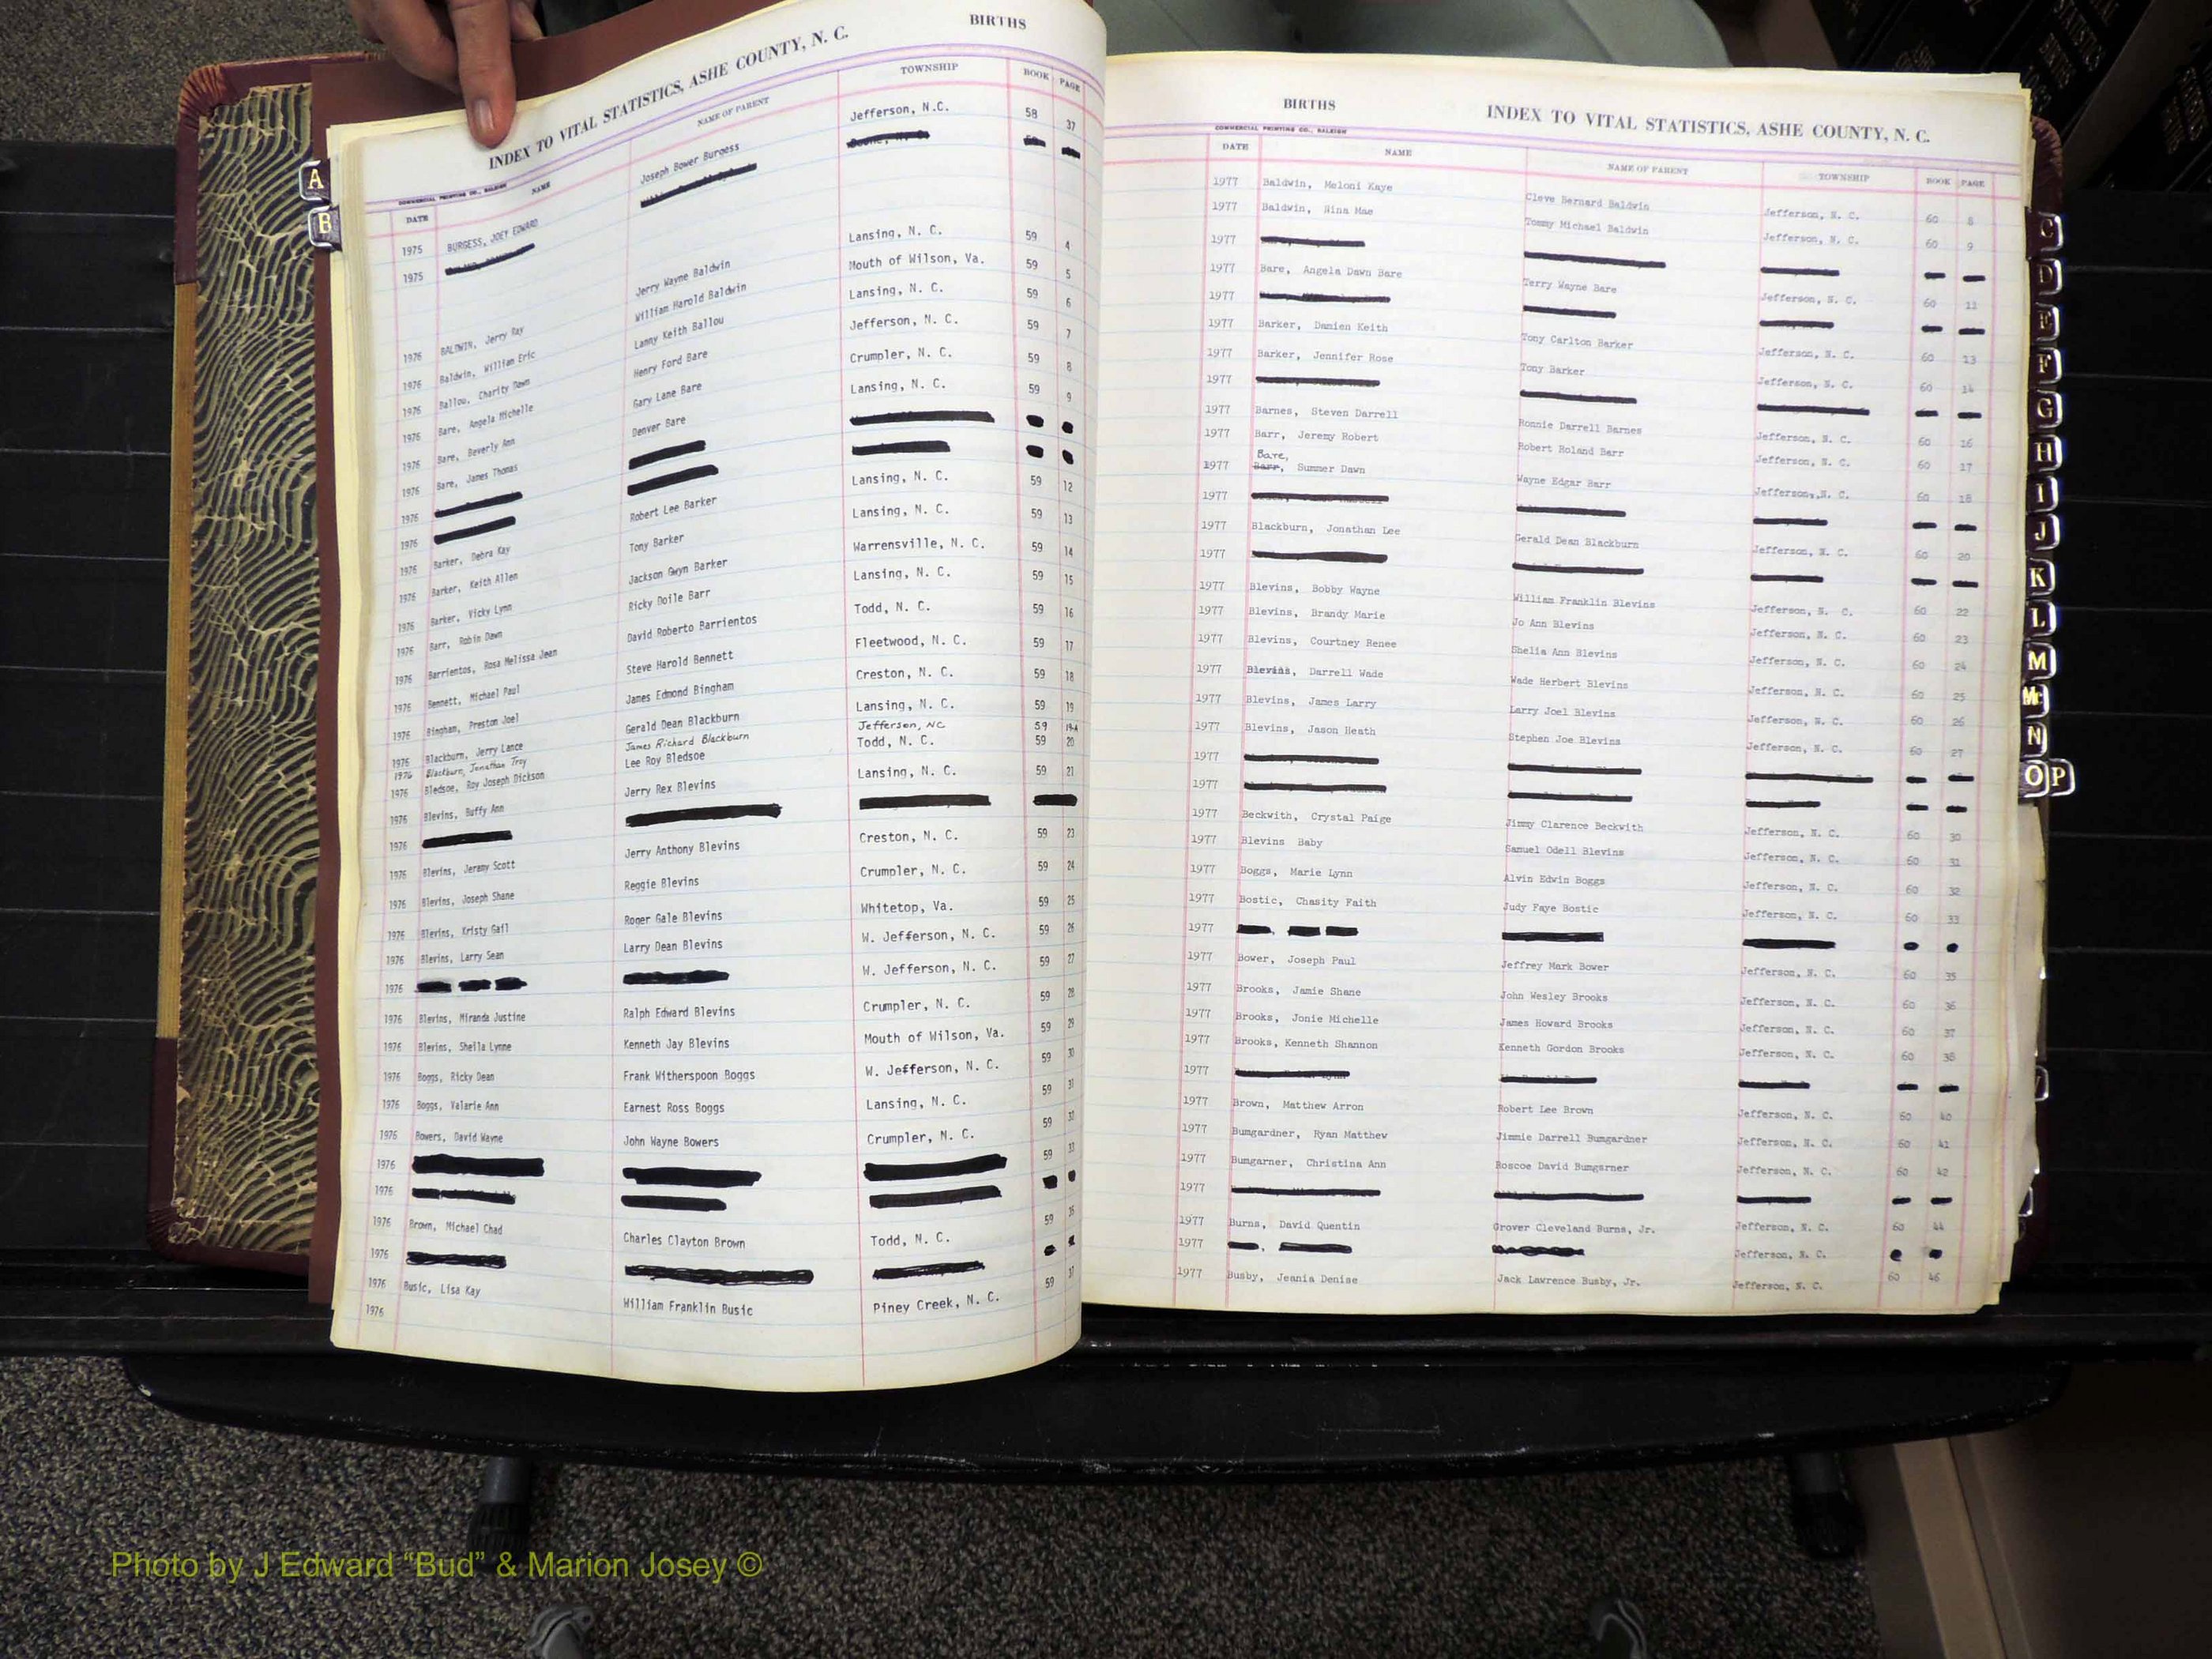 BIRTHS
INDEX TO VITAL STATISTICS, ASHE COUNTY, N. C.
COMMERCIAL PRINTING CO., RALEIGH
DATE NAME NAME OF PARENT TOWNSHIP BOOK PAGE
1975 BURGESS, JOEY EDWARD Joseph Bower Burgess Jefferson, N.C. 58 37
1975
1976 BALDWIN, Jerry Ray Jerry Wayne Baldwin Lansing, N. C. 59 4
1976 Baldwin, William Eric William Harold Baldwin Mouth of Wilson, Va. 59 5
1976 Ballou, Charity Dawn Lanny Keith Ballou Lansing, N. C. 59 6
1976 Bare, Angela Michelle Henry Ford Bare Jefferson, N. C. 59 7
1976 Bare, Beverly Ann Gary Lane Bare Crumpler, N. C. 59 8
1976 Bare, James Thomas Denver Bare Lansing, N. C. 59 9
1976
1976
1976 Barker, Debra Kay Robert Lee Barker Lansing, N. C. 59 12
1976 Barker, Keith Allen Tony Barker Lansing, N. C. 59 13
1976 Barker, Vicky Lynn Jackson Gwyn Barker Warrensville, N. C. 59 14
1976 Barr, Robin Dawn Ricky Doile Barr Lansing, N. C. 59 15
1976 Barrientos, Rosa Melissa Jean David Roberto Barrientos Todd, N. C. 59 16
1976 Bennett, Michael Paul Steve Harold Bennett Fleetwood, N. C. 59 17
1976 Bingham, Preston Joel James Edmond Bingham Creston, N. C. 59 18
1976 Blackburn, Jerry Lance Gerald Dean Blackburn Lansing, N. C. 59 19
1976 Blackburn, Jonathan Troy James Richard Blackburn Jefferson, NC 59 19-A
1976 Bledsoe, Roy Joseph Dickson Lee Roy Bledsoe Todd, N. C. 59 20
1976 Blevins, Buffy Ann Jerry Rex Blevins Lansing, N. C. 59 21
1976
1976 Blevins, Jeremy Scott Jerry Anthony Blevins Creston, N. C. 59 23
1976 Blevins, Joseph Shane Reggie Blevins Crumpler, N. C. 59 24
1976 Blevins, Kristy Gail Roger Gale Blevins Whitetop, Va. 59 25
1976 Blevins, Larry Sean Larry Dean Blevins W. Jefferson, N. C. 59 26
1976 W. Jefferson, N. C. 59 27
1976 Blevins, Miranda Justine Ralph Edward Blevins Crumpler, N. C. 59 28
1976 Blevins, Sheila Lynne Kenneth Jay Blevins Mouth of Wilson, Va. 59 29
1976 Boggs, Ricky Dean Frank Witherspoon Boggs W. Jefferson, N. C. 59 30
1976 Boggs, Valarie Ann Earnest Ross Boggs Lansing, N. C. 59 31
1976 Bowers, David Wayne John Wayne Bowers Crumpler, N. C. 59 32
1976 59 33
1976
1976 Brown, Michael Chad Charles Clayton Brown Todd, N. C. 59
1976
1976 Busic, Lisa Kay William Franklin Busic Piney Creek, N. C. 59 37
1976
BIRTHS
INDEX TO VITAL STATISTICS, ASHE COUNTY, N. C.
COMMERCIAL PRINTING CO., RALEIGH
DATE NAME NAME OF PARENT TOWNSHIP BOOK PAGE
1977 Baldwin, Meloni Kaye Cleve Bernard Baldwin Jefferson, N. C. 60 8
1977 Baldwin, Nina Mae Tommy Michael Baldwin Jefferson, N. C. 60 9
1977
1977 Bare, Angela Dawn Bare Terry Wayne Bare Jefferson, N. C. 60 11
1977
1977 Barker, Damien Keith Tony Carlton Barker Jefferson, N. C. 60 13
1977 Barker, Jennifer Rose Tony Barker Jefferson, N. C. 60 14
1977
1977 Barnes, Steven Darrell Ronnie Darrell Barnes Jefferson, N. C. 60 16
1977 Barr, Jeremy Robert Robert Roland Barr Jefferson, N. C. 60 17
Bare,
1977 Barr, Summer Dawn Wayne Edgar Barr Jefferson,.N. C. 60 18
1977
1977 Blackburn, Jonathan Lee Gerald Dean Blackburn Jefferson, N. C. 60 20
1977
1977 Blevins, Bobby Wayne William Franklin Blevins Jefferson, N. C. 60 22
1977 Blevins, Brandy Marie Jo Ann Blevins Jefferson, N. C. 60 23
1977 Blevins, Courtney Renee Shelia Ann Blevins Jefferson, N. C. 60 24
1977 Blevins, Darrell Wade Wade Herbert Blevins Jefferson, N. C. 60 25
1977 Blevins, James Larry Larry Joel Blevins Jefferson, N. C. 60 26
1977 Blevins, Jason Heath Stephen Joe Blevins Jefferson, N. C. 60 27
1977
1977
1977 Beckwith, Crystal Paige Jimmy Clarence Beckwith Jefferson, N. C. 60 30
1977 Blevins Baby Samuel Odell Blevins Jefferson, N. C. 60 31
1977 Boggs, Marie Lynn Alvin Edwin Boggs Jefferson, N. C. 60 32
1977 Bostic, Chasity Faith Judy Faye Bostic Jefferson, N. C. 60 33
1977
1977 Bower, Joseph Paul Jeffrey Mark Bower Jefferson, N. C. 60 35
1977 Brooks, Jamie Shane John Wesley Brooks Jefferson, N. C. 60 36
1977 Brooks, Jonie Michelle James Howard Brooks Jefferson, N. C. 60 37
1977 Brooks, Kenneth Shannon Kenneth Gordon Brooks Jefferson, N. C. 60 38
1977
1977 Brown, Matthew Arron Robert Lee Brown Jefferson, N. C. 60 40
1977 Bumgardner, Ryan Matthew Jimmie Darrell Bumgardner Jefferson, N. C. 60 41
1977 Bumgarner, Christina Ann Roscoe David Bumgarner Jefferson, N. C. 60 42
1977
1977 Burns, David Quentin Grover Cleveland Burns, Jr. Jefferson, N. C. 60 44
1977 Jefferson, N. C.
1977 Busby, Jeania Denise Jack Lawrence Busby, Jr. Jefferson, N. C. 60 46
A
B
C
D
E
F
G
H
I
J
K
L
M
Mc
N
O P
Photo by J Edward “Bud” & Marion Josey ©